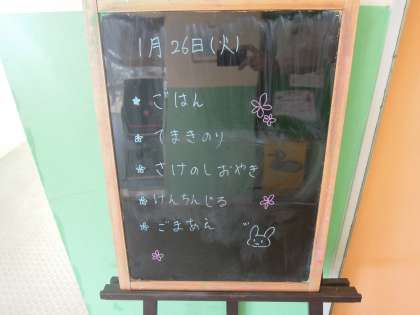 1月26日(火)
* ごはん
* てまきのり
* さけのしおやき
* けんちんじる
* ごまあえ